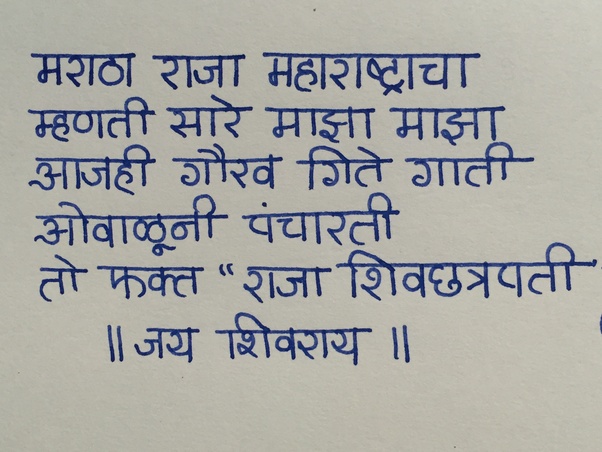 मराठा राजा महाराष्ट्राचा
म्हणती सारे माझा माझा
आजही गौरव गिते गाती
ओवाळूनी पंचारती
तो फक्त “राजा शिवछत्रपती"
॥ जय शिवराय ॥